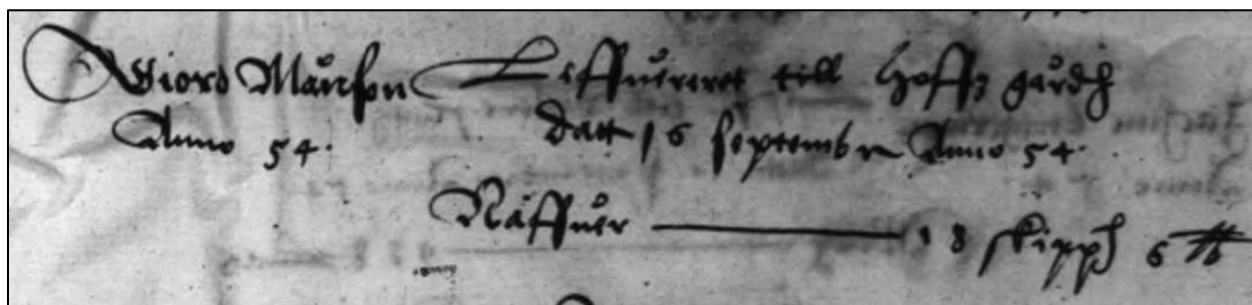 Giord Månson Leffuereret till Hoffz gårdh
Anno 54. Datt 16 septembr Anno 54.
Näffuer 18 skipp 6 ℔